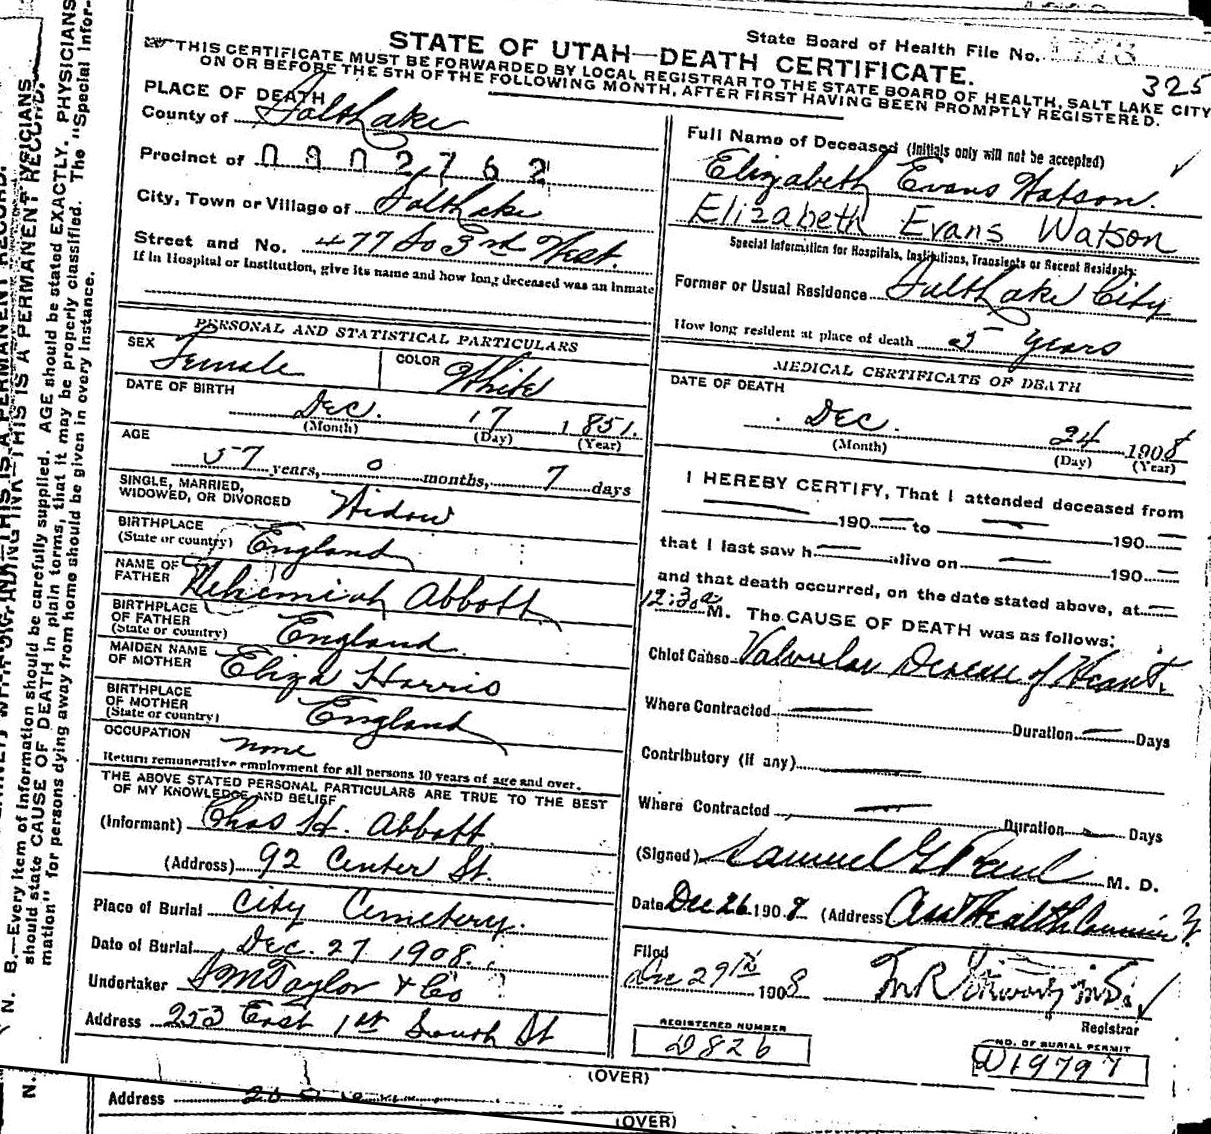 State Board of Health File No.
325
STATE OF UTAH—DEATH CERTIFICATE.
THIS CERTIFICATE MUST BE FORWARDED BY LOCAL REGISTRAR TO THE STATE BOARD OF HEALTH, SALT LAKE CITY
ON OR BEFORE THE 5TH OF THE FOLLOWING MONTH, AFTER FIRST HAVING BEEN PROMPTLY REGISTERED.
PLACE OF DEATH
County of Salt Lake
Precinct of 0802762
City, Town or Village of Salt Lake
Street and No. 477 So 3rd West.
If in Hospital or Institution, give its name and how long deceased was an inmate
PERSONAL AND STATISTICAL PARTICULARS
SEX Female COLOR White
DATE OF BIRTH
Dec. 17 1851.
(Month) (Day) (Year)
AGE
57 years, 0 months, 7 days
SINGLE, MARRIED,
WIDOWED, OR DIVORCED Widow
BIRTHPLACE
(State or country) England
NAME OF
FATHER Nehemiah Abbott
BIRTHPLACE
OF FATHER
(State or country) England
MAIDEN NAME
OF MOTHER Eliza Harris
BIRTHPLACE
OF MOTHER
(State or country) England
OCCUPATION none
Return remunerative employment for all persons 10 years of age and over.
THE ABOVE STATED PERSONAL PARTICULARS ARE TRUE TO THE BEST
OF MY KNOWLEDGE AND BELIEF
(Informant) Chas H. Abbott
(Address) 92 Center St.
Place of Burial City Cemetery.
Date of Burial Dec. 27 1908.
Undertaker S M Taylor & Co
Address 253 East 1st South St
Full Name of Deceased (Initials only will not be accepted)
Elizabeth Evans Watson.
Elizabeth Evans Watson
Special Information for Hospitals, Institutions, Transients or Recent Residents:
Former or Usual Residence Salt Lake City
How long resident at place of death 5 years
MEDICAL CERTIFICATE OF DEATH
DATE OF DEATH
Dec. 24 1908
(Month) (Day) (Year)
I HEREBY CERTIFY, That I attended deceased from
— 190 — to — 190 —
that I last saw h — alive on — 190 —
and that death occurred, on the date stated above, at —
12:30a M. The CAUSE OF DEATH was as follows:
Chief Cause Valvular Disease of Heart.
Where Contracted — Duration — Days
Contributory (if any) —
Where Contracted — Duration — Days
(Signed) Samuel G Paul M. D.
Date Dec 26 1908 (Address) Asst Health Commis'r.
Filed
Dec 29th 1908
Registrar
REGISTERED NUMBER
D826
NO. OF BURIAL PERMIT
D19797
(OVER)
Address
(OVER)
N. B.—Every item of information should be carefully supplied. AGE should be stated EXACTLY. PHYSICIANS
should state CAUSE OF DEATH in plain terms, that it may be properly classified. The "Special Infor-
mation" for persons dying away from home should be given in every instance.
THIS IS A PERMANENT RECORD.